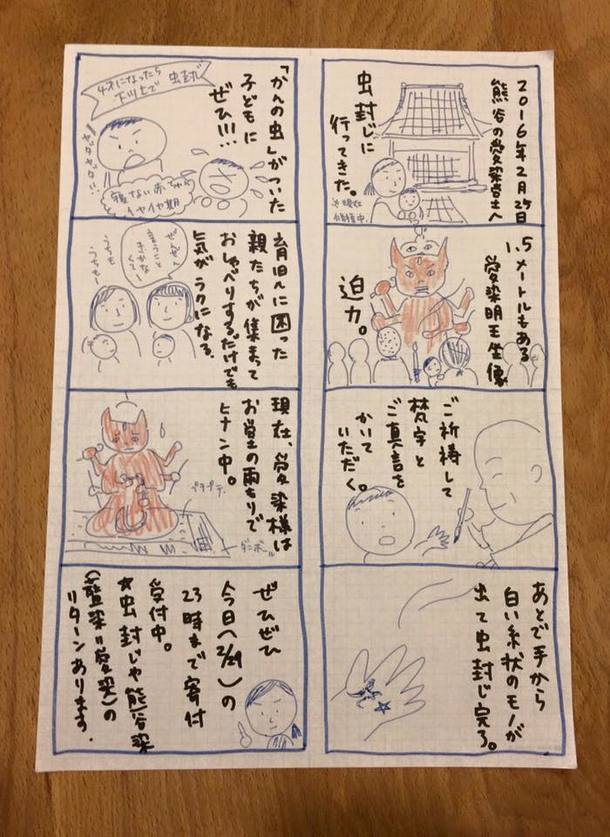 2016年2月25日
熊谷の愛染堂へ
虫封じに
行ってきた。
※現在
修復中。
1.5メートルもある
愛染明王坐像
迫力。
ご祈祷して
梵字と
ご真言を
かいて
いただく。
あとで手から
白い糸状のモノが
出て虫封じ完了。
「かんの虫」がついた
子どもに
ぜひ!!!
虫封じ
寝ない赤ちゃん
イヤイヤ期
育児に困った
親たちが集まって
おしゃべりするだけでも
気がラクになる。
ぜんぜん
言うこと
きかな
くて…
うちも
うちもー
現在、愛染様は
お堂の雨もりで
ヒナン中。
ぜひぜひ
今日(2/29)の
23時まで寄付
受付中。
★虫封じや熊谷染
(藍染=愛染)の
リターンあります。